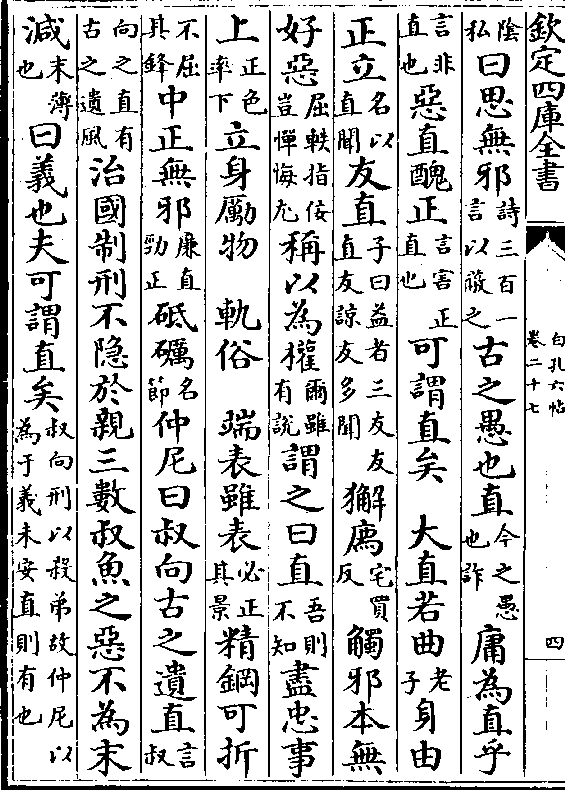 欽定四庫全書
白孔六帖
卷二十七
四
陰私曰思無邪詩三百一言以蔽之古之愚也直今之愚也詐庸為直乎
言非直也惡直醜正言害正直也可謂直矣 大直若曲老子身由
正立名以直聞友直子曰益者三友友直友諒友多聞獬廌宅買反觸邪本無
好惡屈軼指佞豈憚悔尤稱以為權爾雖有説謂之曰直吾則不知盡忠事
上正色率下立身勵物 軌俗 端表雖表必正其景精鋼可折
不屈其鋒中正無邪廉直勁正砥礪名節仲尼曰叔向古之遺直言叔
向之直有古之遺風治國制刑不隐於親三數叔魚之惡不為末
減末薄也曰義也夫可謂直矣叔向刑以殺弟故仲尼以為于義未安直則有也